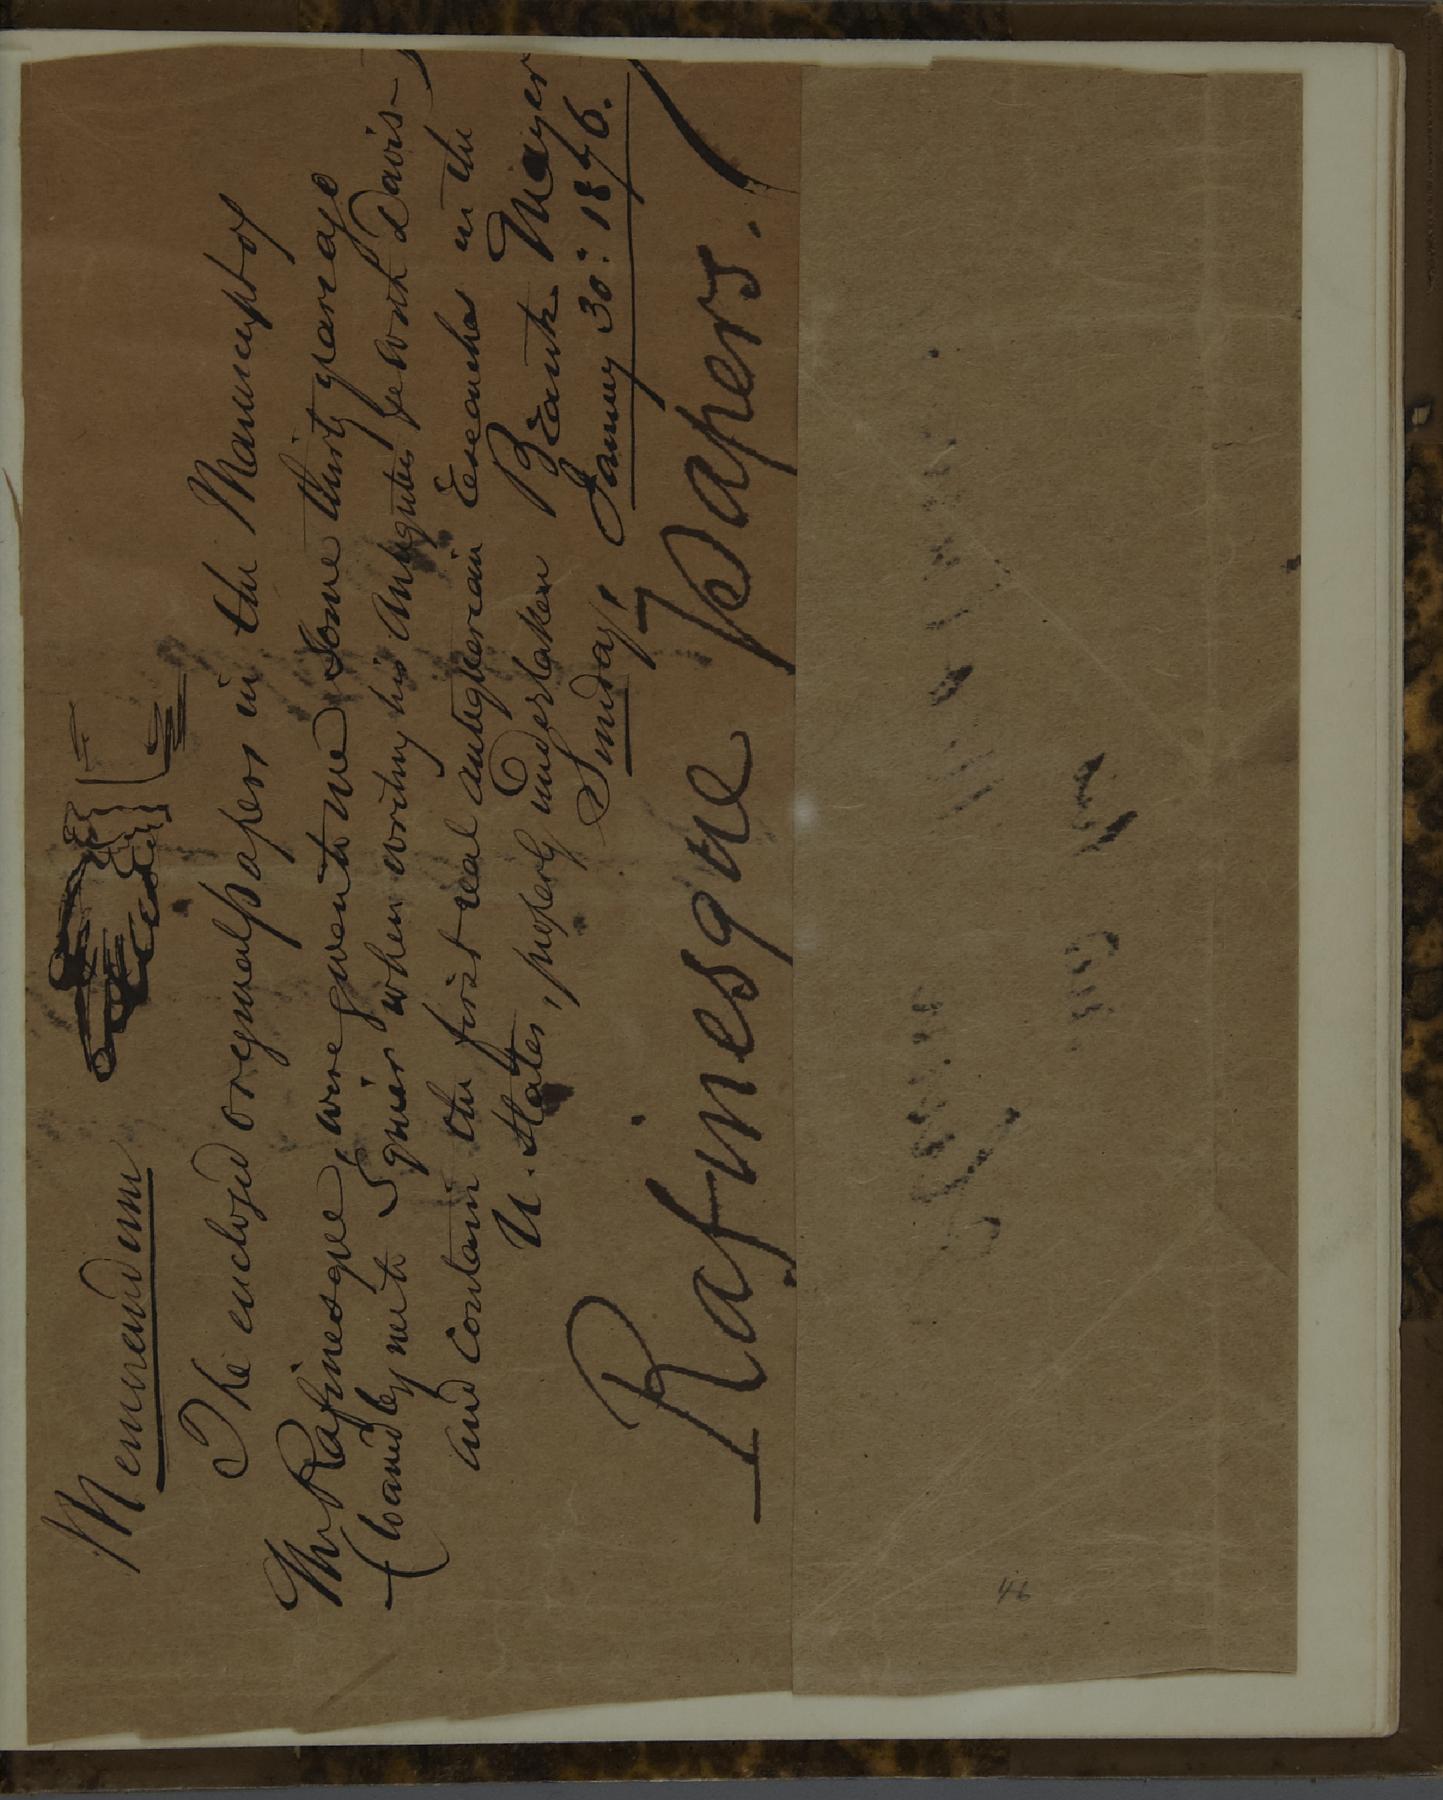 Memorandum
The enclosed original papers in the Manuscript of
Mr Rafinesque, were given to me some thirty years ago
(loaned by me to Squier when writing his Antiquities for work Davis)
and contain the first real antiquarian researches in the
U. States, properly undertaken Brantz Mayer
Sunday, January 30: 1876.
Rafinesque Papers.
46